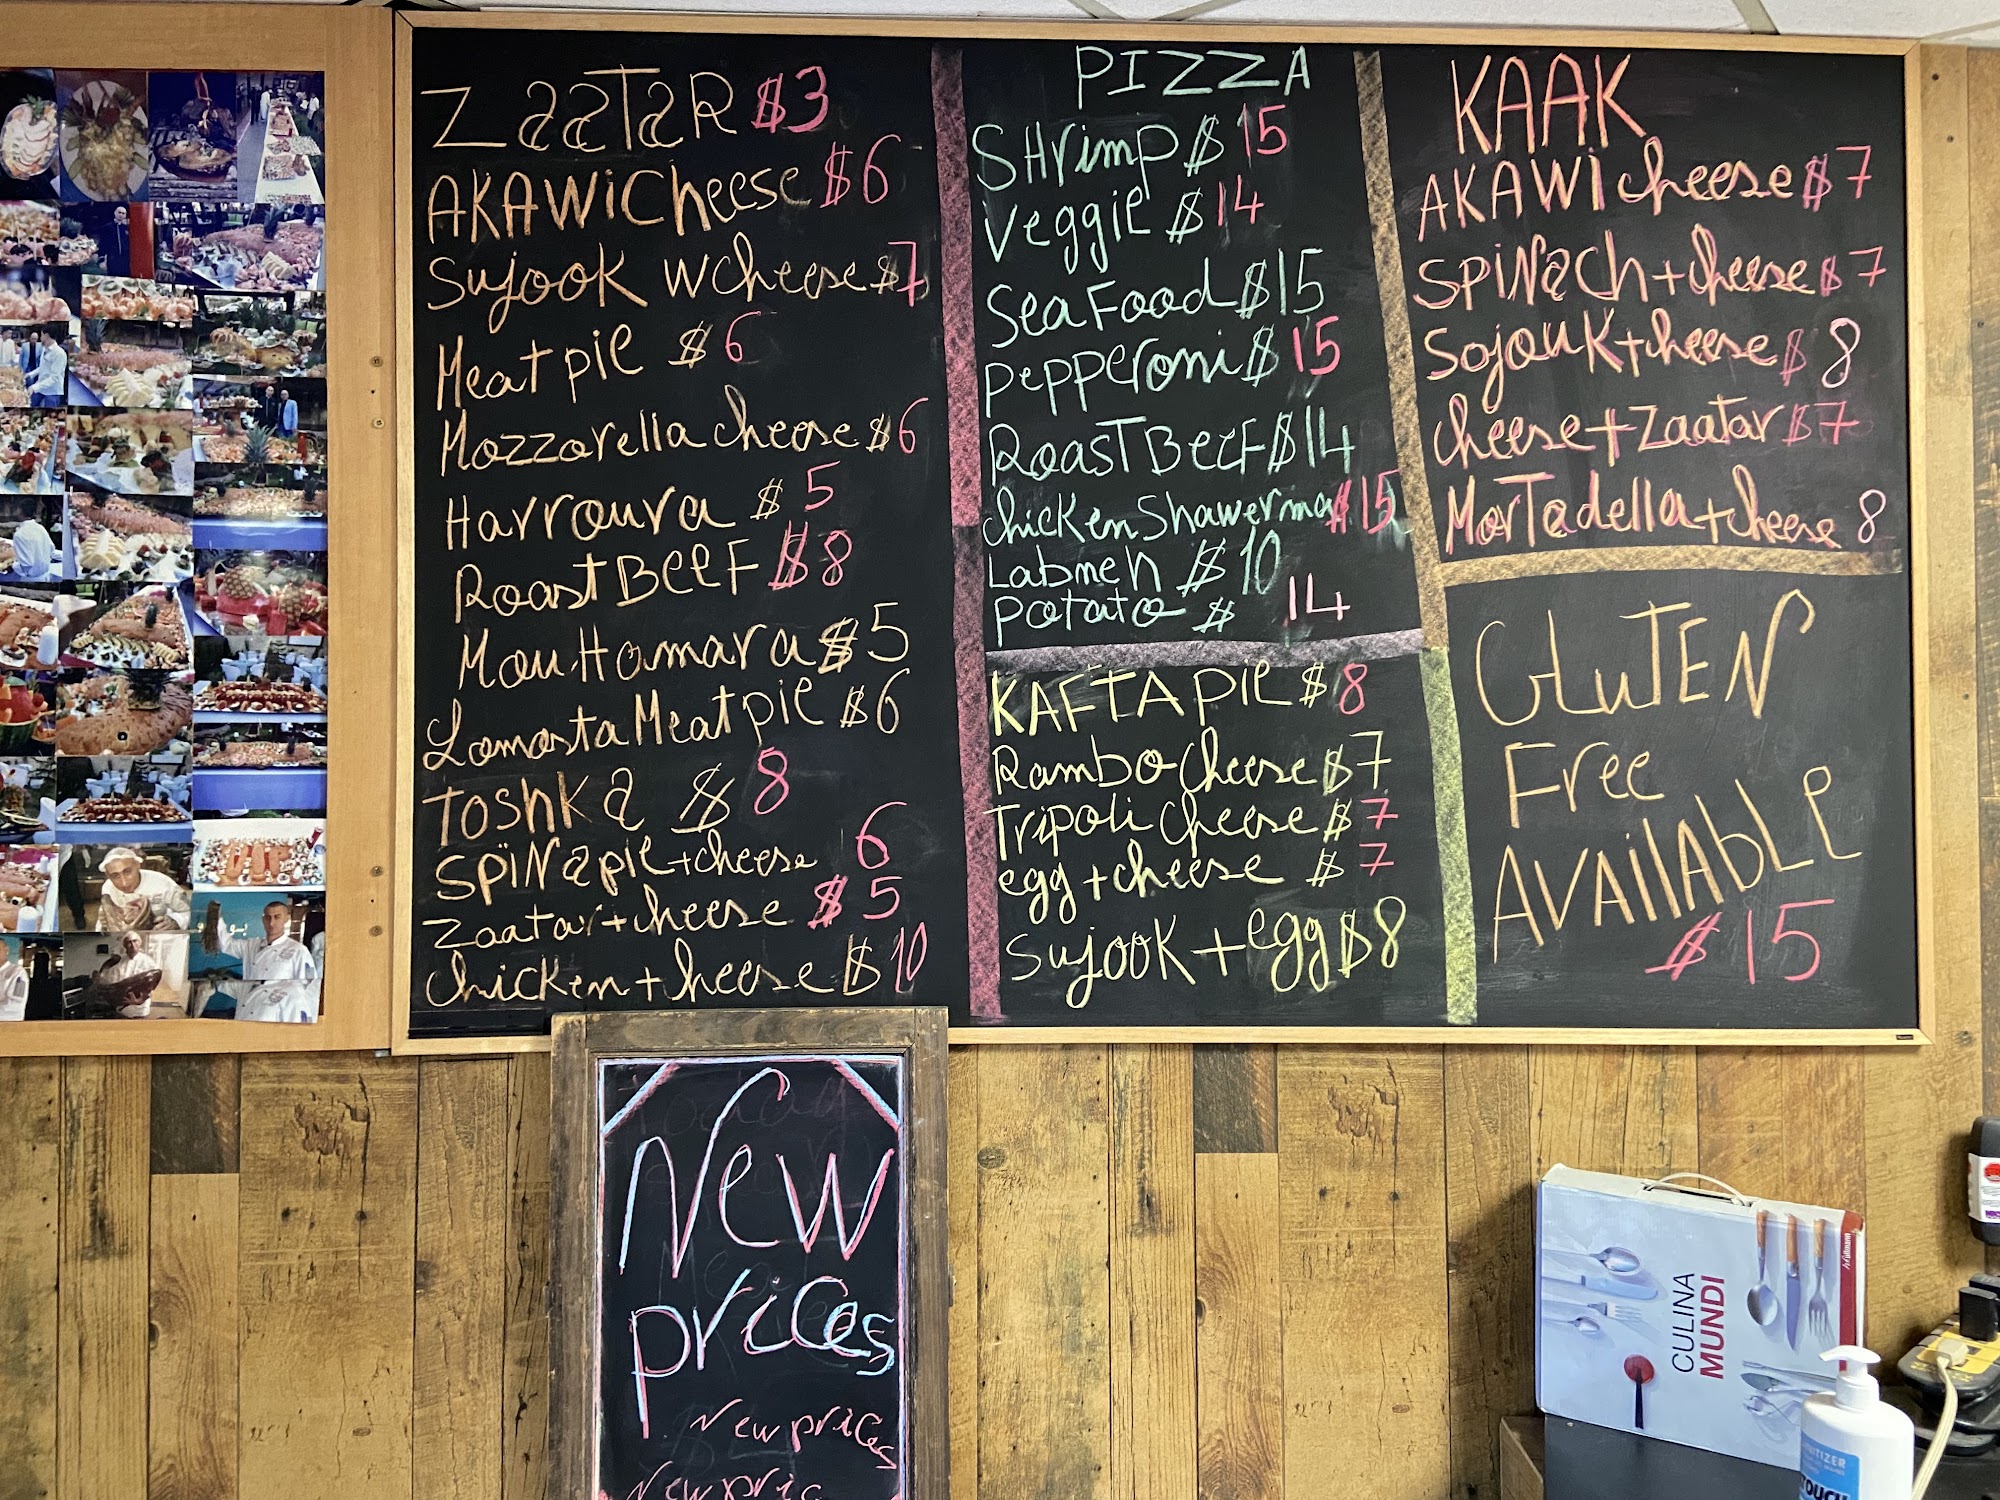 ZaaTaR $3
AKAWiCheese $6
Sujook wcheese $7
Meat pie $6
Mozzarella cheese $6
Harroura $5
RoastBeeF $8
Mou.Hamara $5
Lomasta Meat pie $6
Toshka $8
SPiNa pie+cheese 6
Zaatar+cheese $5
chicken+cheese $10
PIZZA
SHrimp $15
Veggie $14
Sea Food $15
Pepperoni $15
RoasT BeeF $14
chicken Shawerma $15
Labneh $10
Potato $ 14
KAFTA Pie $8
Rambo cheese $7
Tripoli cheese $7
egg+cheese $7
Sujook+egg $8
KAAK
AKAWi cheese $7
SPiNach+cheese $7
Sojouk+cheese $8
cheese+Zaatar $7
MorTadella+cheese 8
GluTEN
Free
AVAilAbLe
$15
New
prices
New prices
New pric
CULINA
MUNDI